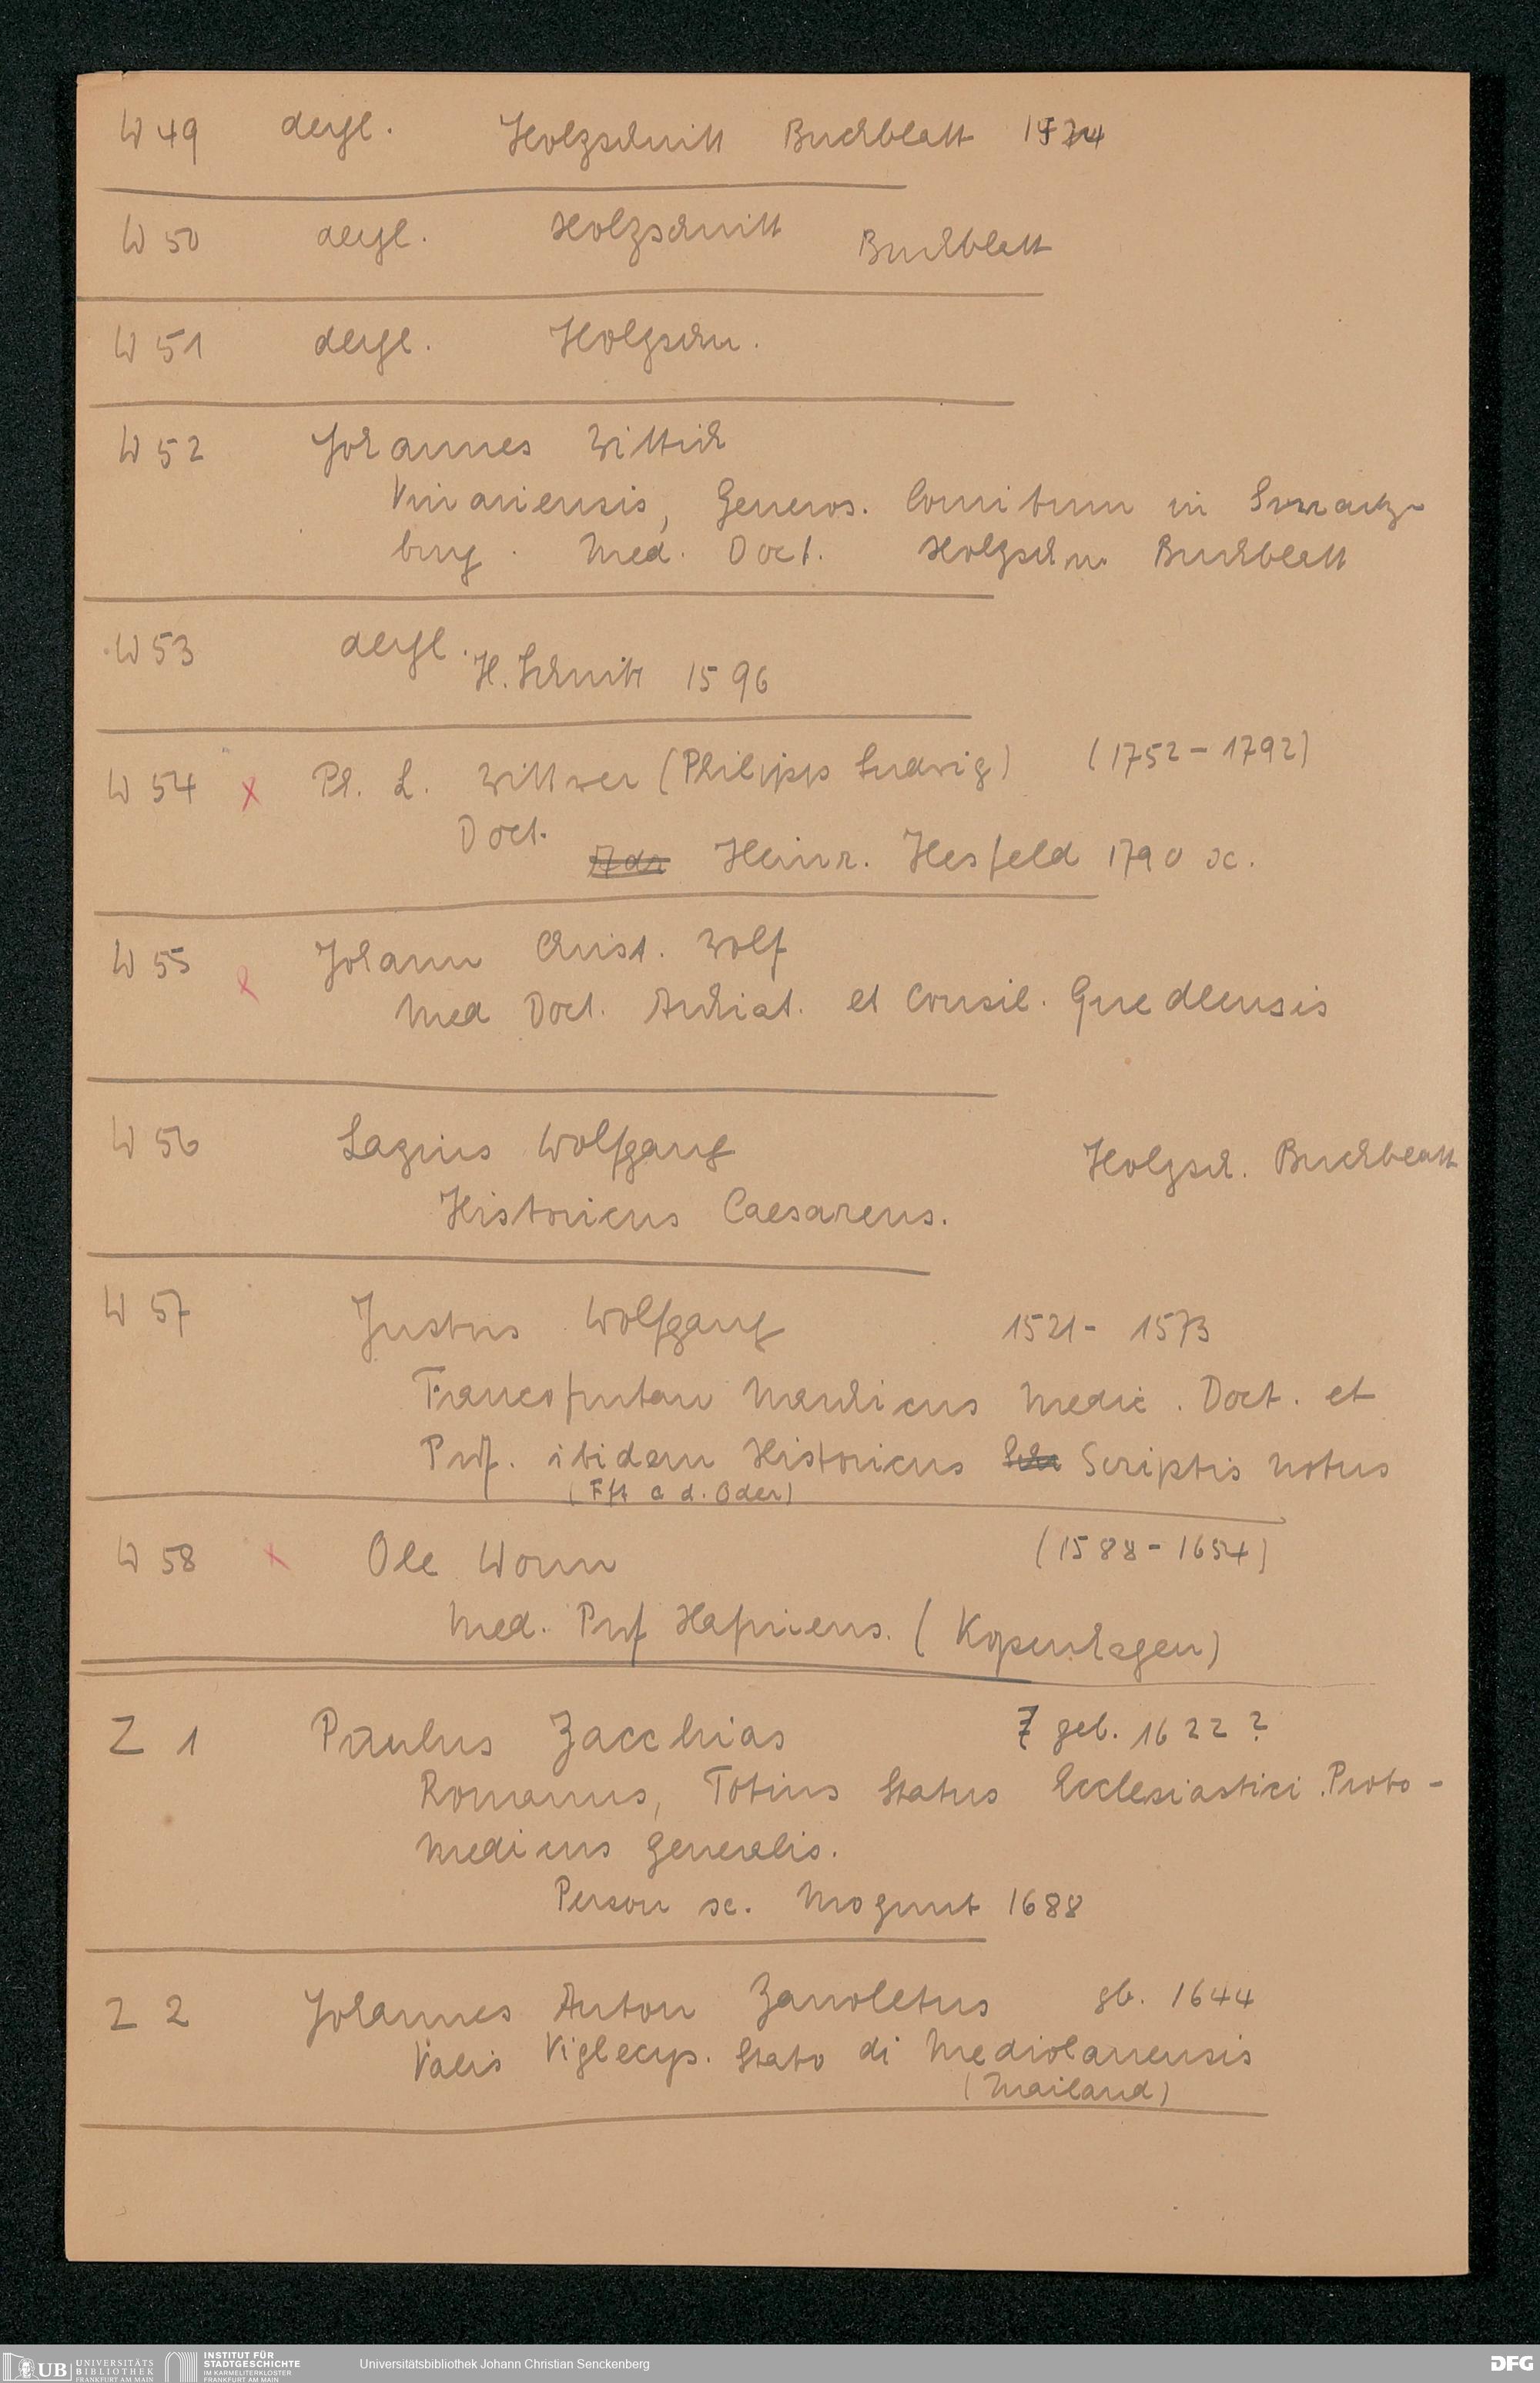 W 49 dergl. Holzschnitt Buchblatt 1574
W 50 dergl. Holzschnitt Buchblatt
W 51 dergl. Holzschn.
W 52 Johannes Wittich
Vinariensis, Generos. Comitum in Swartz-
burg. Med. Doct. Holzschn. Buchblatt
W 53 dergl. H. Schnitt 1596
W 54 x Ph. L. Wittwer (Philipp Ludwig) (1752 - 1792)
Doct.
Heinr. Hesfeld 1790 sc.
W 55 x Johann Christ. Wolf
Med Doct. Archiat. et Consil. Quedlensis
W 56 Lazius Wolfgang Holzsch. Buchblatt
Historicus Caesareus.
W 57 Justus Wolfgang 1521 - 1573
Francofurtan Marchicus Medic. Doct. et
Prof. ibidem Historicus Scriptis notus
(Fft a d. Oder)
W 58 x Ole Worm (1588 - 1654)
Med. Prof Hafniens. (Kopenhagen)
Z 1 Paulus Zacchias geb. 1622?
Romanus, Totius Status Ecclesiastici Proto-
medicus Generalis.
Person sc. Mogunt 1688
Z 2 Johannes Anton Zanoletus gb. 1644
Valis Viglecys. Stato di Mediolanensis
(Mailand)
UB UNIVERSITÄTS
BIBLIOTHEK
FRANKFURT AM MAIN
INSTITUT FÜR
STADTGESCHICHTE
IM KARMELITERKLOSTER
FRANKFURT AM MAIN
Universitätsbibliothek Johann Christian Senckenberg
DFG